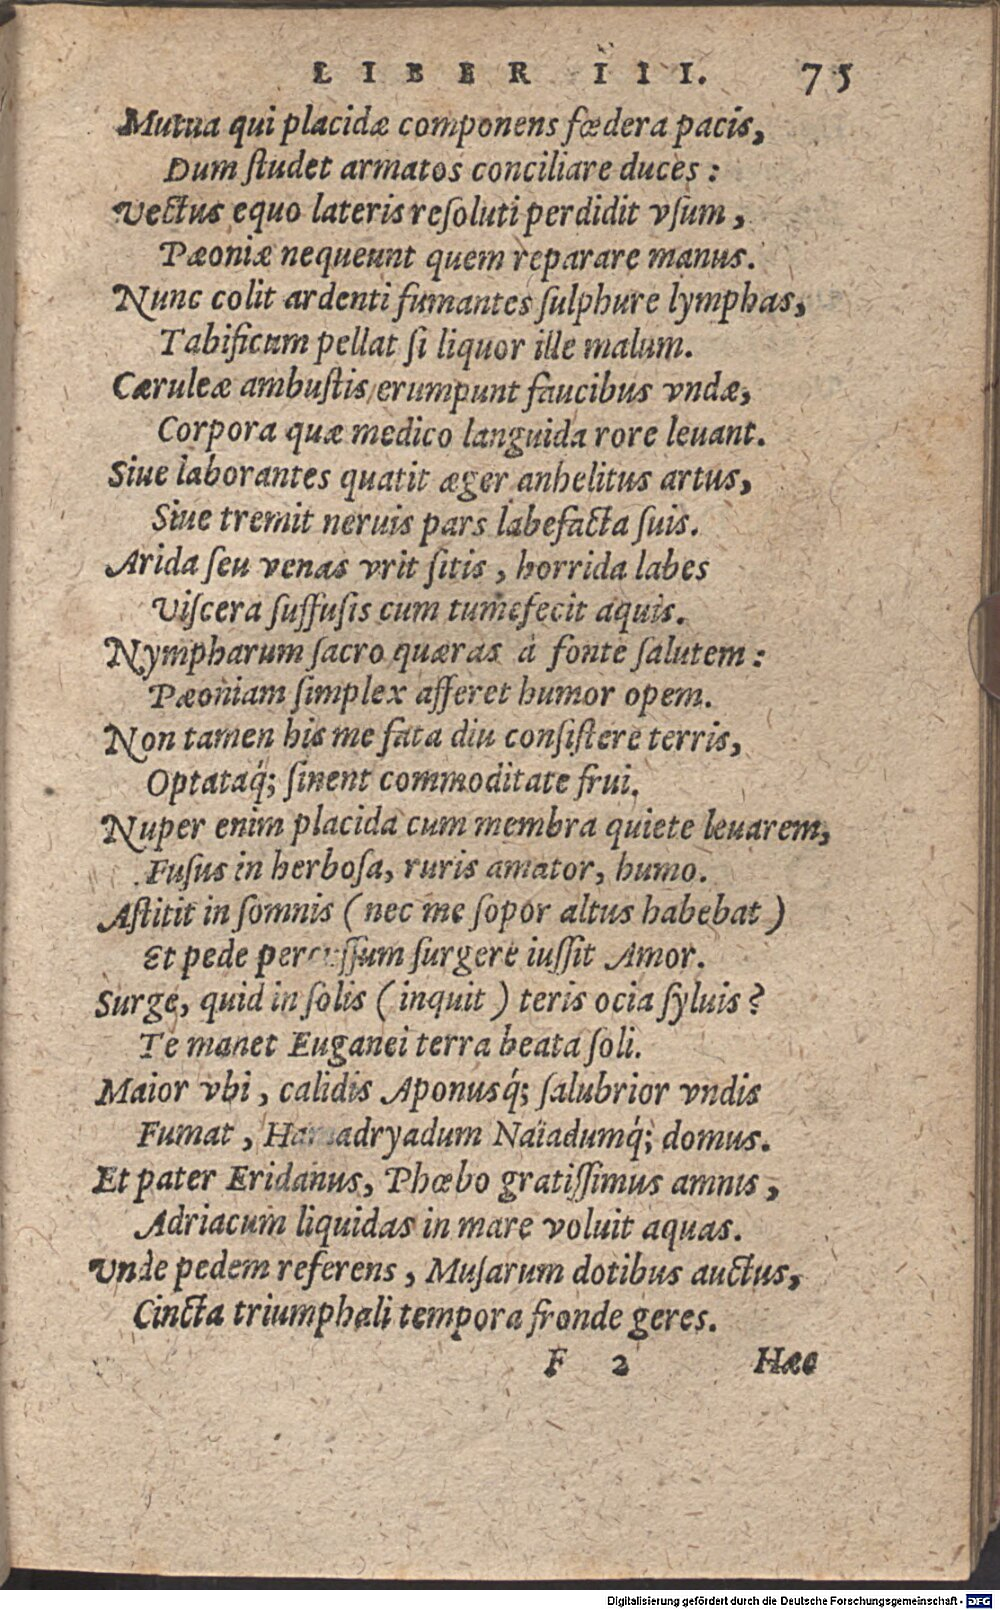 LIBER III. 75
Mutua qui placidæ componens fœdera pacis,
Dum ſtudet armatos conciliare duces:
Vectus equo lateris reſoluti perdidit vſum,
Pæoniæ nequeunt quem reparare manus.
Nunc colit ardenti fumantes ſulphure lymphas,
Tabificum pellat ſi liquor ille malum.
Cæruleæ ambuſtis erumpunt faucibus vndæ,
Corpora quæ medico languida rore leuant.
Siue laborantes quatit æger anhelitus artus,
Siue tremit neruis pars labefacta ſuis.
Arida ſeu venas vrit ſitis, horrida labes
Viſcera ſuffuſis cum tumefecit aquis.
Nympharum ſacro quæras à fonte ſalutem:
Pæoniam ſimplex afferet humor opem.
Non tamen his me fata diu conſiſtere terris,
Optataq́; ſinent commoditate frui.
Nuper enim placida cum membra quiete leuarem,
Fuſus in herboſa, ruris amator, humo.
Aſtitit in ſomnis (nec me ſopor altus habebat)
Et pede percuſſum ſurgere iuſſit Amor.
Surge, quid in ſolis (inquit) teris ocia ſyluis?
Te manet Euganei terra beata ſoli.
Maior vbi, calidis Aponusq́; ſalubrior vndis
Fumat, Hamadryadum Naïadumq́; domus.
Et pater Eridanus, Phœbo gratiſſimus amnis,
Adriacum liquidas in mare voluit aquas.
Vnde pedem referens, Muſarum dotibus auctus,
Cincta triumphali tempora fronde geres.
F 2 Hæc
Digitalisierung gefördert durch die Deutsche Forschungsgemeinschaft - DFG